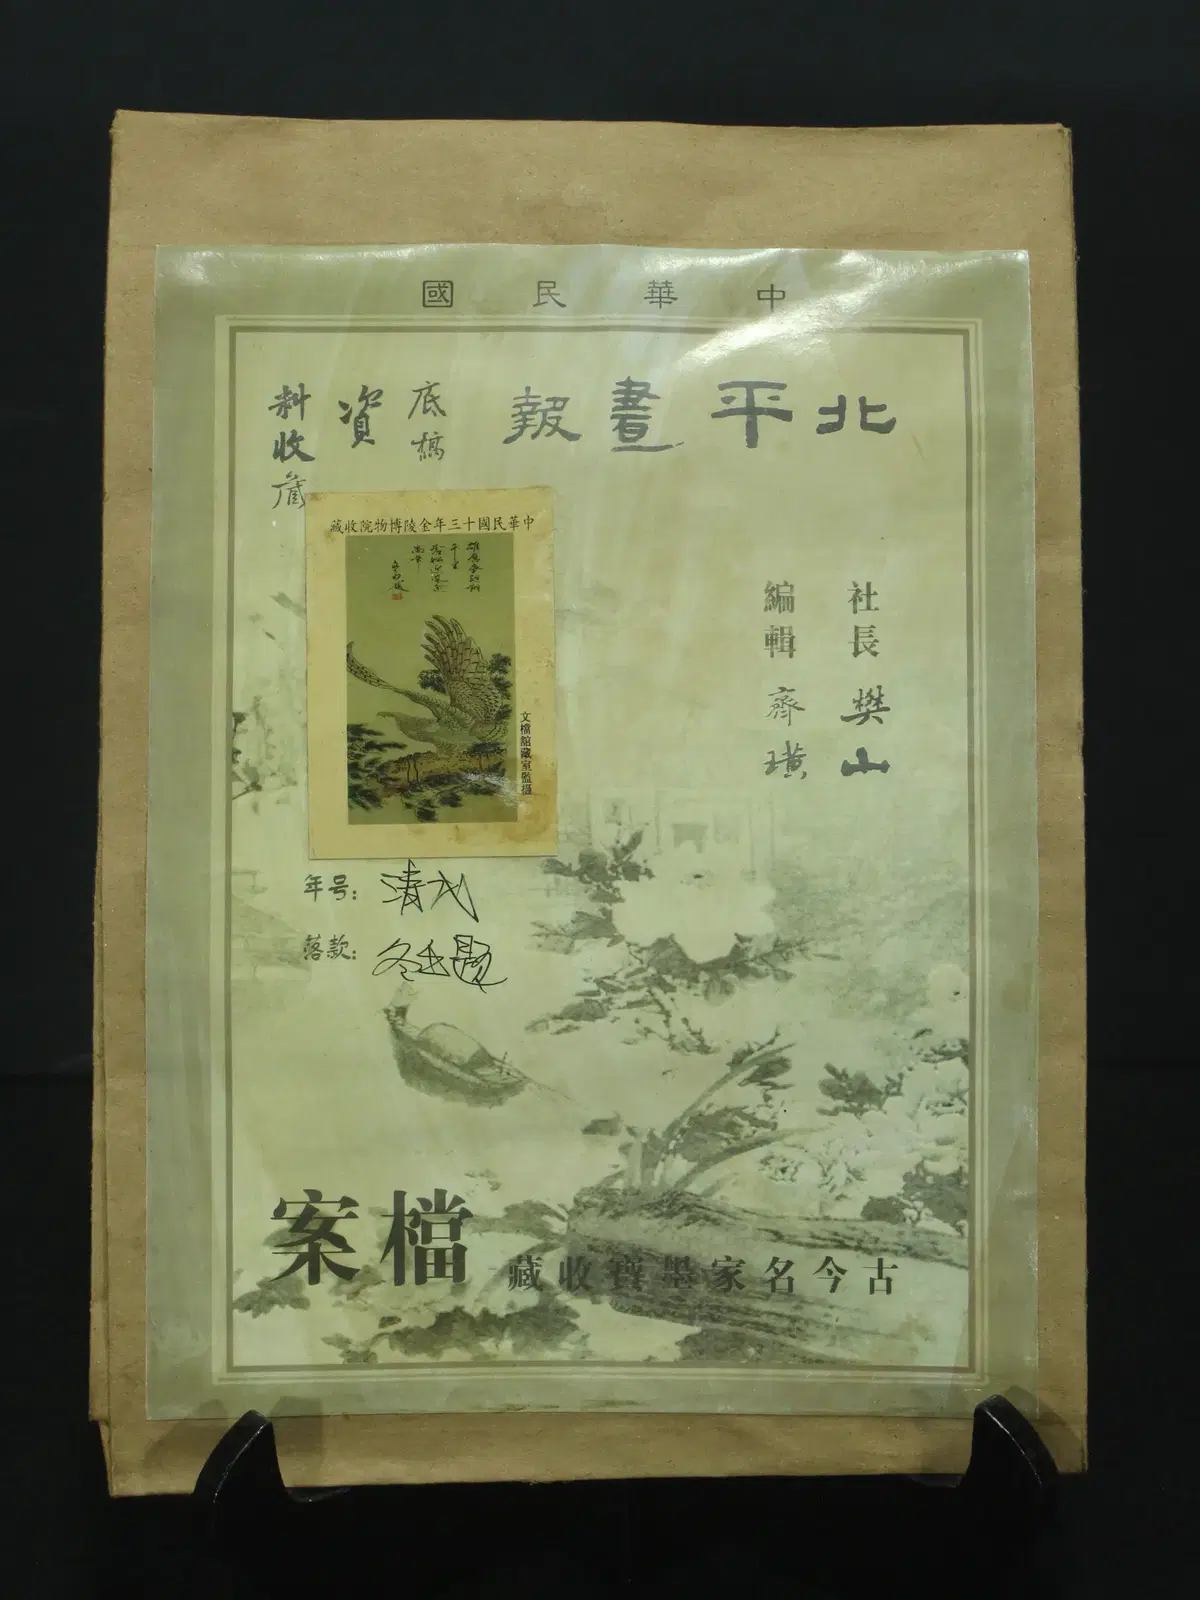 中華民國
北平畫報
底槁
資
料收藏
中華民國十三年金陵博物院收藏
文檔舘藏室監攝
社長 樊山
編輯 齊璜
年号：清代
落款：
檔案
古今名家墨寶收藏